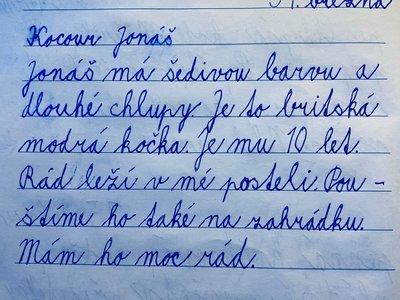 března
Kocour Jonáš
Jonáš má šedivou barvu a
dlouhé chlupy. Je to britská
modrá kočka. Je mu 10 let.
Rád leží v mé posteli. Pou-
štíme ho také na zahrádku.
Mám ho moc rád.